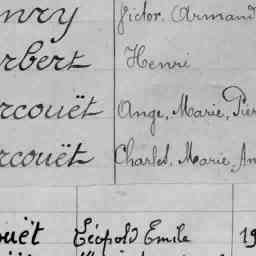 nry Victor. Armand
rbert Henri
rcouët Ange, Marie, Pier
rcouët Charles, Marie, An
ouët Léopold Emile 19